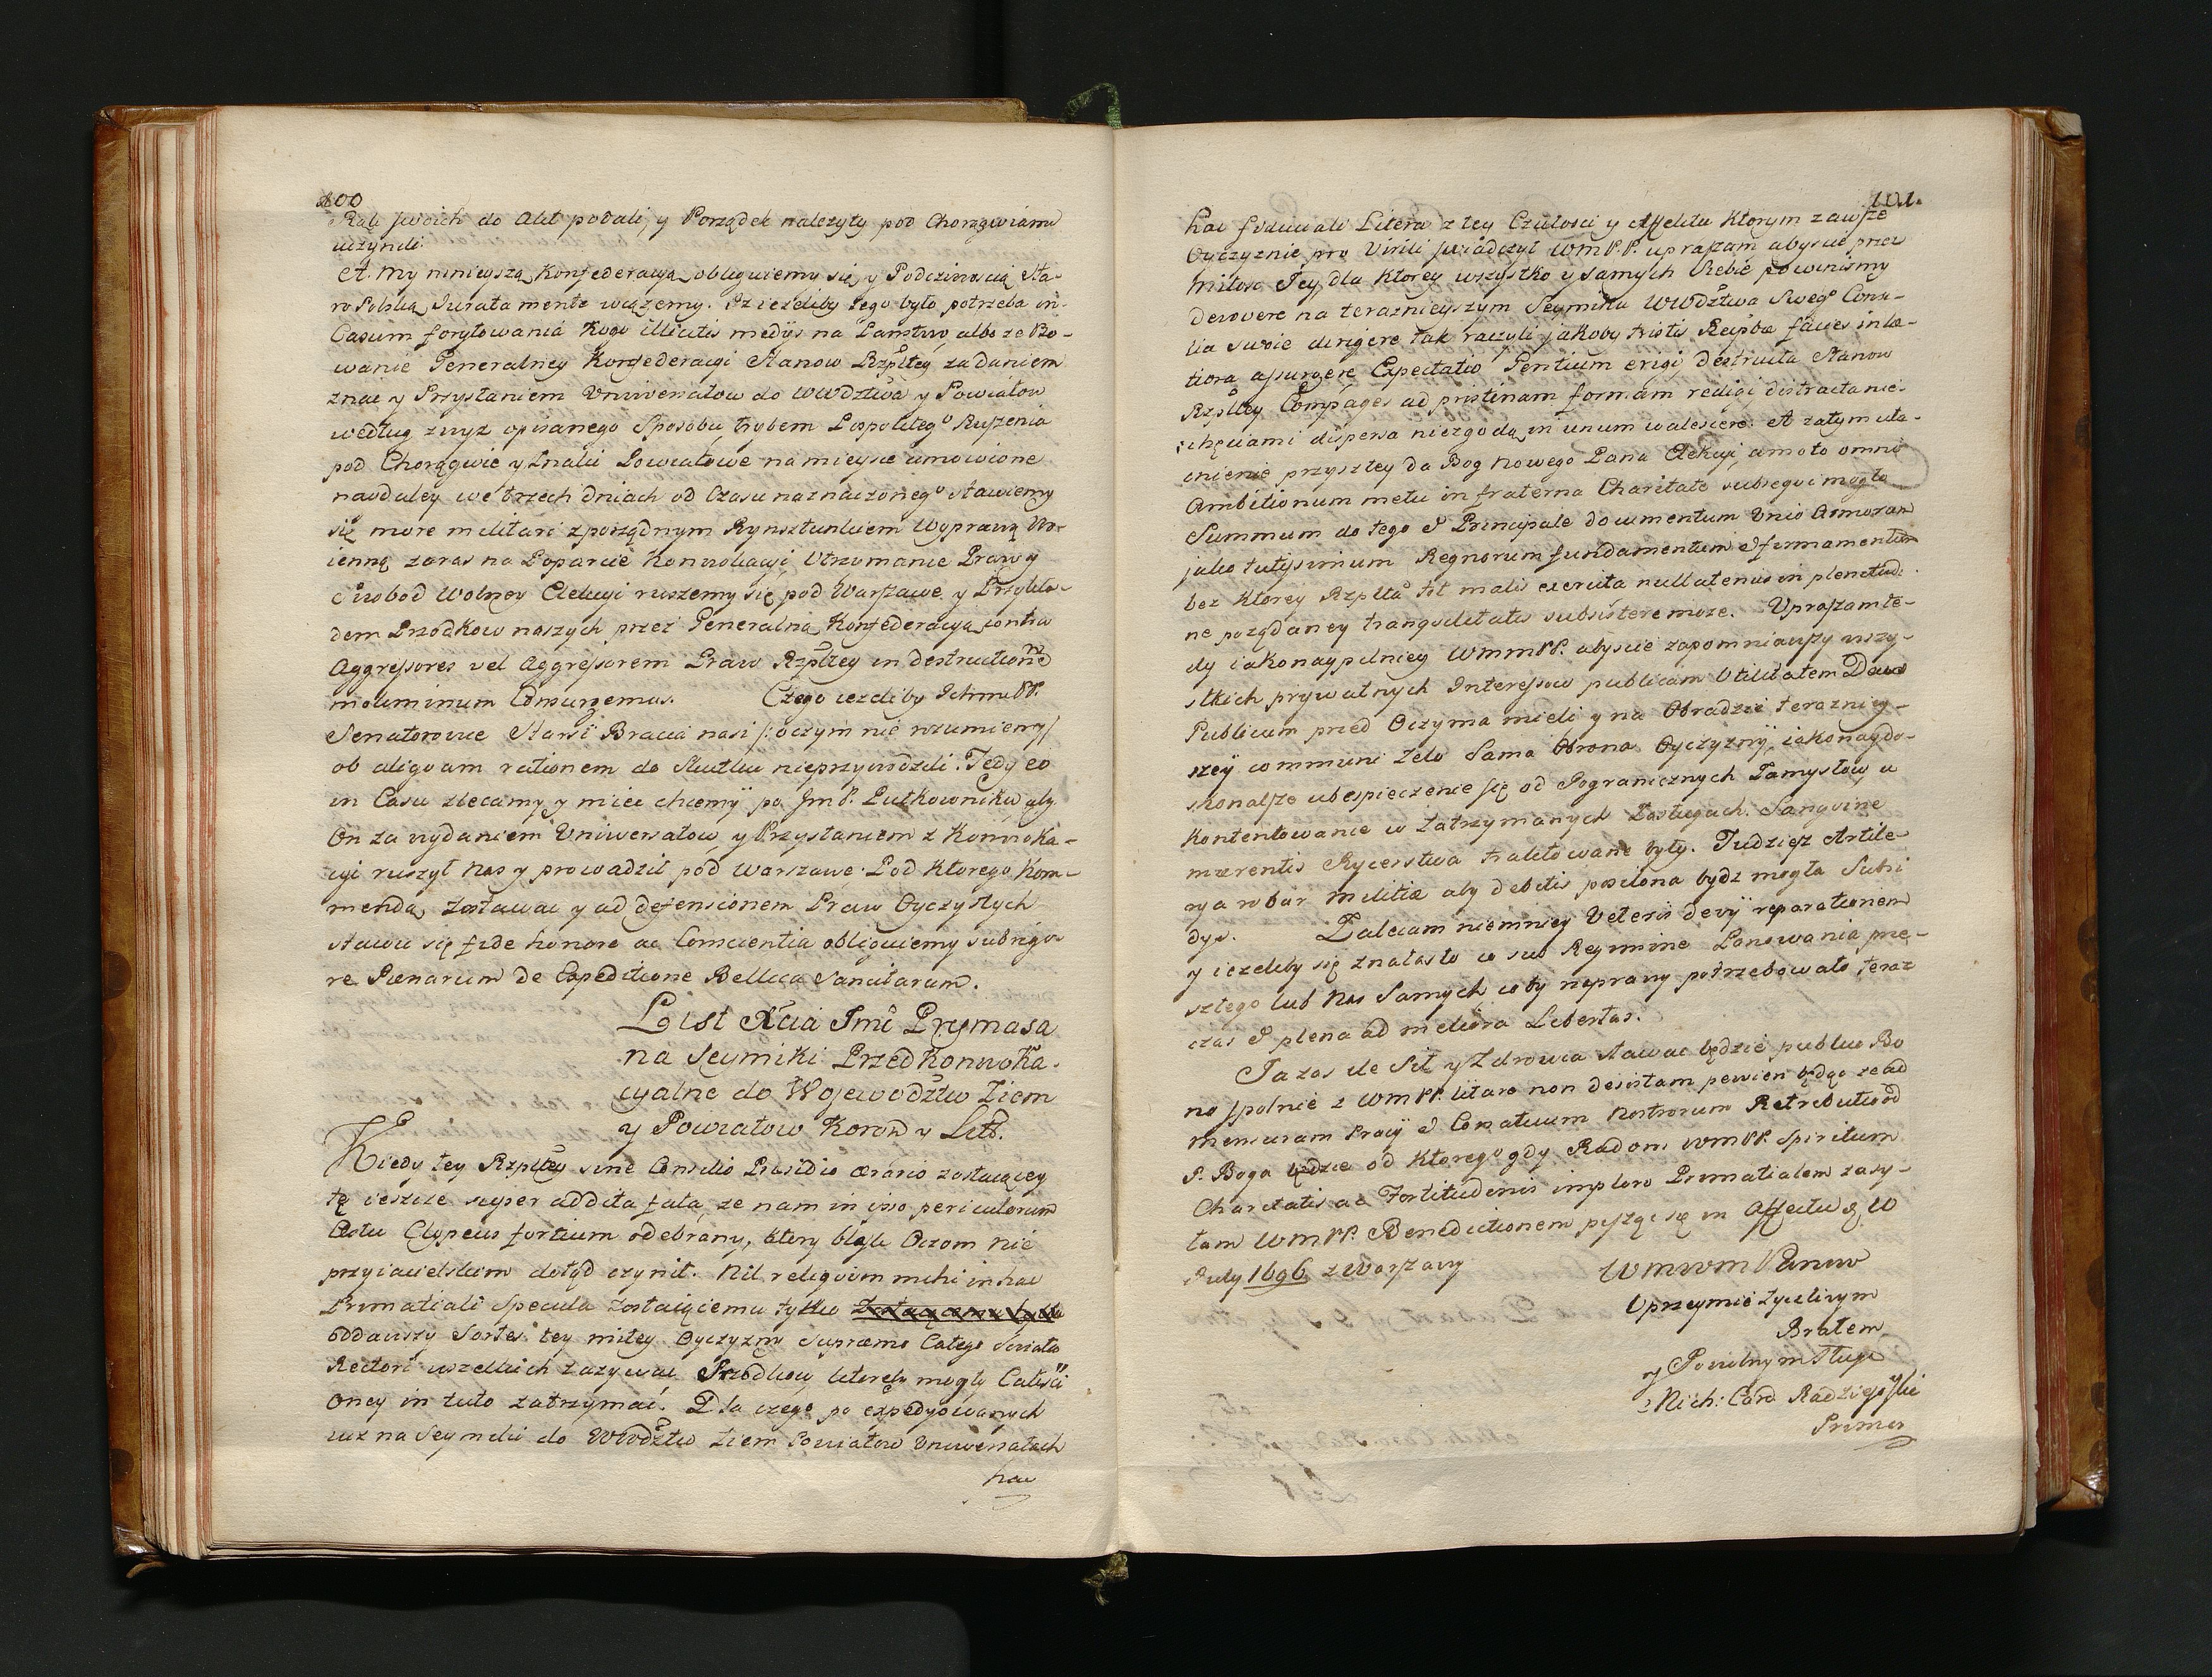 100
Rali swoich do Akt podali, y Porządek nalezyty pod Chorągwiami
uczynili.
A My ninieyszą Konfederacyą obliguiemy się y Poczciwoscią Sta-
ro Polską Iurata mente wiążemy. Iz iezeliby tego było potrzeba in
Casum forytowania Kogo illicitis medijs na Panstwo, albo ze Bo-
wanie Generalney Konfederacyi Stanow Rzpltey za daniem
znac y Przysłaniem Vniwersałow do WWdztwa y Powiatow
według zwyz opisanego Sposobu, trybem Pospolitego Ruszenia
pod Chorągwie y Znaki Powiatowe na mieysce umowione
naydaley we trzech dniach od Czasu naznaczonego stawiemy
się more militari z porządnym Rynsztunkiem Wyprawą Wo-
ienną zaraz na Poparcie Konwokacyi, Vtrzymanie Praw y
Swobod Wolney Elekcyi ruszemy się pod Warszawę y Przykła-
dem Przodkow naszych przez Generalną Konfederacyą contra
Aggressores vel Aggressorem Praw Rzpltey in destructione
moliminum Consurgemus. Czego iezeliby Ichmc PP.
Senatorowie Starsi Bracia nasi /: o czym nie rozumiemy /
ob aliquam rationem do Skutku nieprzywodzili. Tedy eo
in Casu zlecamy y miec chcemy po Jm P. Pułkowniku aby
On za wydaniem Vniwersałow y Przysłaniem z Konwoka-
cyi ruszył Nas y prowadził pod Warszawę. Pod Ktorego Kom-
mendą zostawac y ad defensionem Praw Oyczystych
stawic się fide honore ac Conscientia obliguiemy sub rigo-
re Pœnarum de Expeditione Bellica Sancitarum.
List Xcia Jmci Prymasa
na Seymiki Przedkonwoka-
cyalne do Wojewodztw Ziem
y Powiatow Koron y Litt.
Kiedy tey Rzpltey sine Consilio Præsidio ærario zostaiącey
tę ieszcze super addita fata, ze nam in ipso periculorum
Æstu Clypeus fortium odebrany, ktory blask Oczom nie
przyiacielskim dotąd czynił. Nil reliquum mihi in hac
Primatiali Specula zostaiącemu tylko
oddawszy Sortes tey miłey Oyczyzny Supremo Całego swiata
Rectori wszelkich zazywac Srzodkow, ktoreby mogły Całosci
Oney in tuto zatrzymać. Dla czego po expedyowanych
iuz na Seymiki do WWdztw Ziem Powiatow Vniwersałach
hac
101.
hac fiduciali Litera z tey Czułosci y Affektu Ktorym zawsze
Oyczyznie pro Virili swiadczył WmPP. upraszam abyscie przez
miłosc Jey dla Ktorey wszystko y Samych Siebie powinismy
devovere na terazniejszym Seymiku WWdztwa Swego Consi-
lia swoie dirigere tak raczyli jakoby tristis Reipbcæ facies in læ-
tiora assurgere Expectatio Gentium erigi, destructa Stanow
Rzpltey Compages ad pristinam formam redigi distracta nie-
chęciami dispersa niezgodą in unum coalescere. A zatym uła-
cnienie przyszłey da Bog nowego Pana Elekcyi, amoto omni
Ambitionum metu in fraterna Charitate subsequi mogło
Summum do tego & Principale documentum Vnio Animorum
jako tutissimum Regnorum fundamentum & firmamentum
bez Ktorey Rzplta tot malis exercita nullatenus in plenitudi-
ne pożądaney tranquilitatis subsistere moze. Vpraszam te-
dy iako naypilniey WmmPP. abyscie zapomniawszy wszy-
stkich prywatnych Interessow publicam Vtilitatem
Publicum przed Oczyma mieli y na Obradzie terazniey-
szey communi zelo Sama Obrona Oyczyzny, iako naydo-
skonalsze ubespieczenie się od Pogranicznych Zamysłow, u
Kontentowanie w zatrzymanych Zasługach Sangvine
mærentis Rycerstwa traktowane były. Tudzież Artile-
rya robur Militiæ aby debitis posilona bydz mogła Subsi-
dys. Zalecam niemniey Veteris ævij reparationem
y iezeliby się znalazło co sub Regimine Panowania prze-
szłego lub Nas Samych coby naprawy potrzebowało, teraz
czas & plena ad meliora Libertas.
Ja zas ile Sił y Zdrowia stawac będzie publico Bo
no spolnie z WmPP. litare non desistam pewien będąc ze ad
mensuram Pracy & Conatuum Nostrorum Retributio od
P. Boga będzie od Ktorego gdy Radom WmPP. Spiritum
Charitatis ac Fortitudinis imploro Primatialem zasy-
łam WmPP. Benedictionem pisząc się in Affectu d. 10
July 1696 z Warszawy
WmWm Panow
Vprzeymie zyczliwym
Bratem
y Powolnym Sługą
Mich: Card Radzieyski
Primas